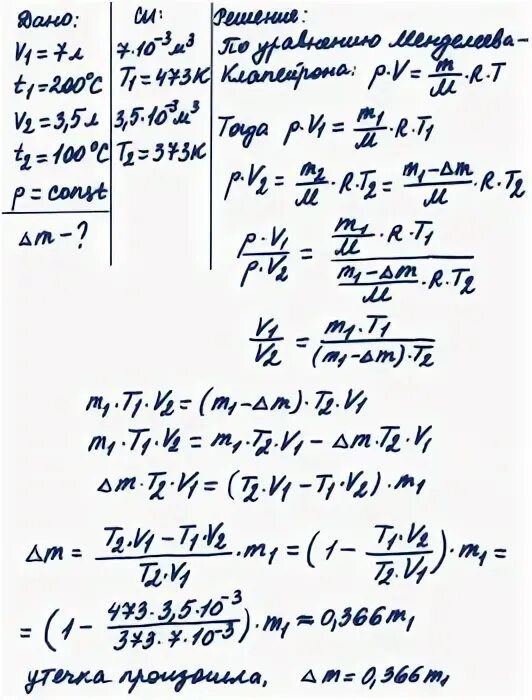 Дано:
V₁ = 7 л
t₁ = 200°C
V₂ = 3,5 л
t₂ = 100°C
p = const
Δm - ?
СИ:
7·10⁻³ м³
T₁ = 473K
3,5·10⁻³ м³
T₂ = 373K
Решение:
По уравнению Менделеева-
Клапейрона: p·V = m/M · R·T
Тогда p·V₁ = m₁/M · R·T₁
p·V₂ = m₂/M · R·T₂ = (m₁-Δm)/M · R·T₂
(p·V₁)/(p·V₂) = (m₁/M · R·T₁)/((m₁-Δm)/M · R·T₂)
V₁/V₂ = (m₁·T₁)/((m₁-Δm)·T₂)
m₁·T₁·V₂ = (m₁-Δm)·T₂·V₁
m₁·T₁·V₂ = m₁·T₂·V₁ - Δm·T₂·V₁
Δm·T₂·V₁ = (T₂·V₁ - T₁·V₂)·m₁
Δm = (T₂·V₁ - T₁·V₂)/(T₂·V₁) · m₁ = (1 - (T₁·V₂)/(T₂·V₁))·m₁ =
= (1 - (473·3,5·10⁻³)/(373·7·10⁻³))·m₁ = 0,366m₁
утечка произошла, Δm = 0,366m₁